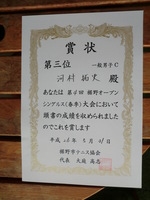 賞状
第三位 一般男子C
河村 拓史 殿
あなたは第 回 裾野オープン
シングルス(春季)大会において
頭書の成績を収められました
のでこれを賞します
平成 年 5月 日
裾野市テニス協会
代表 大庭 高志